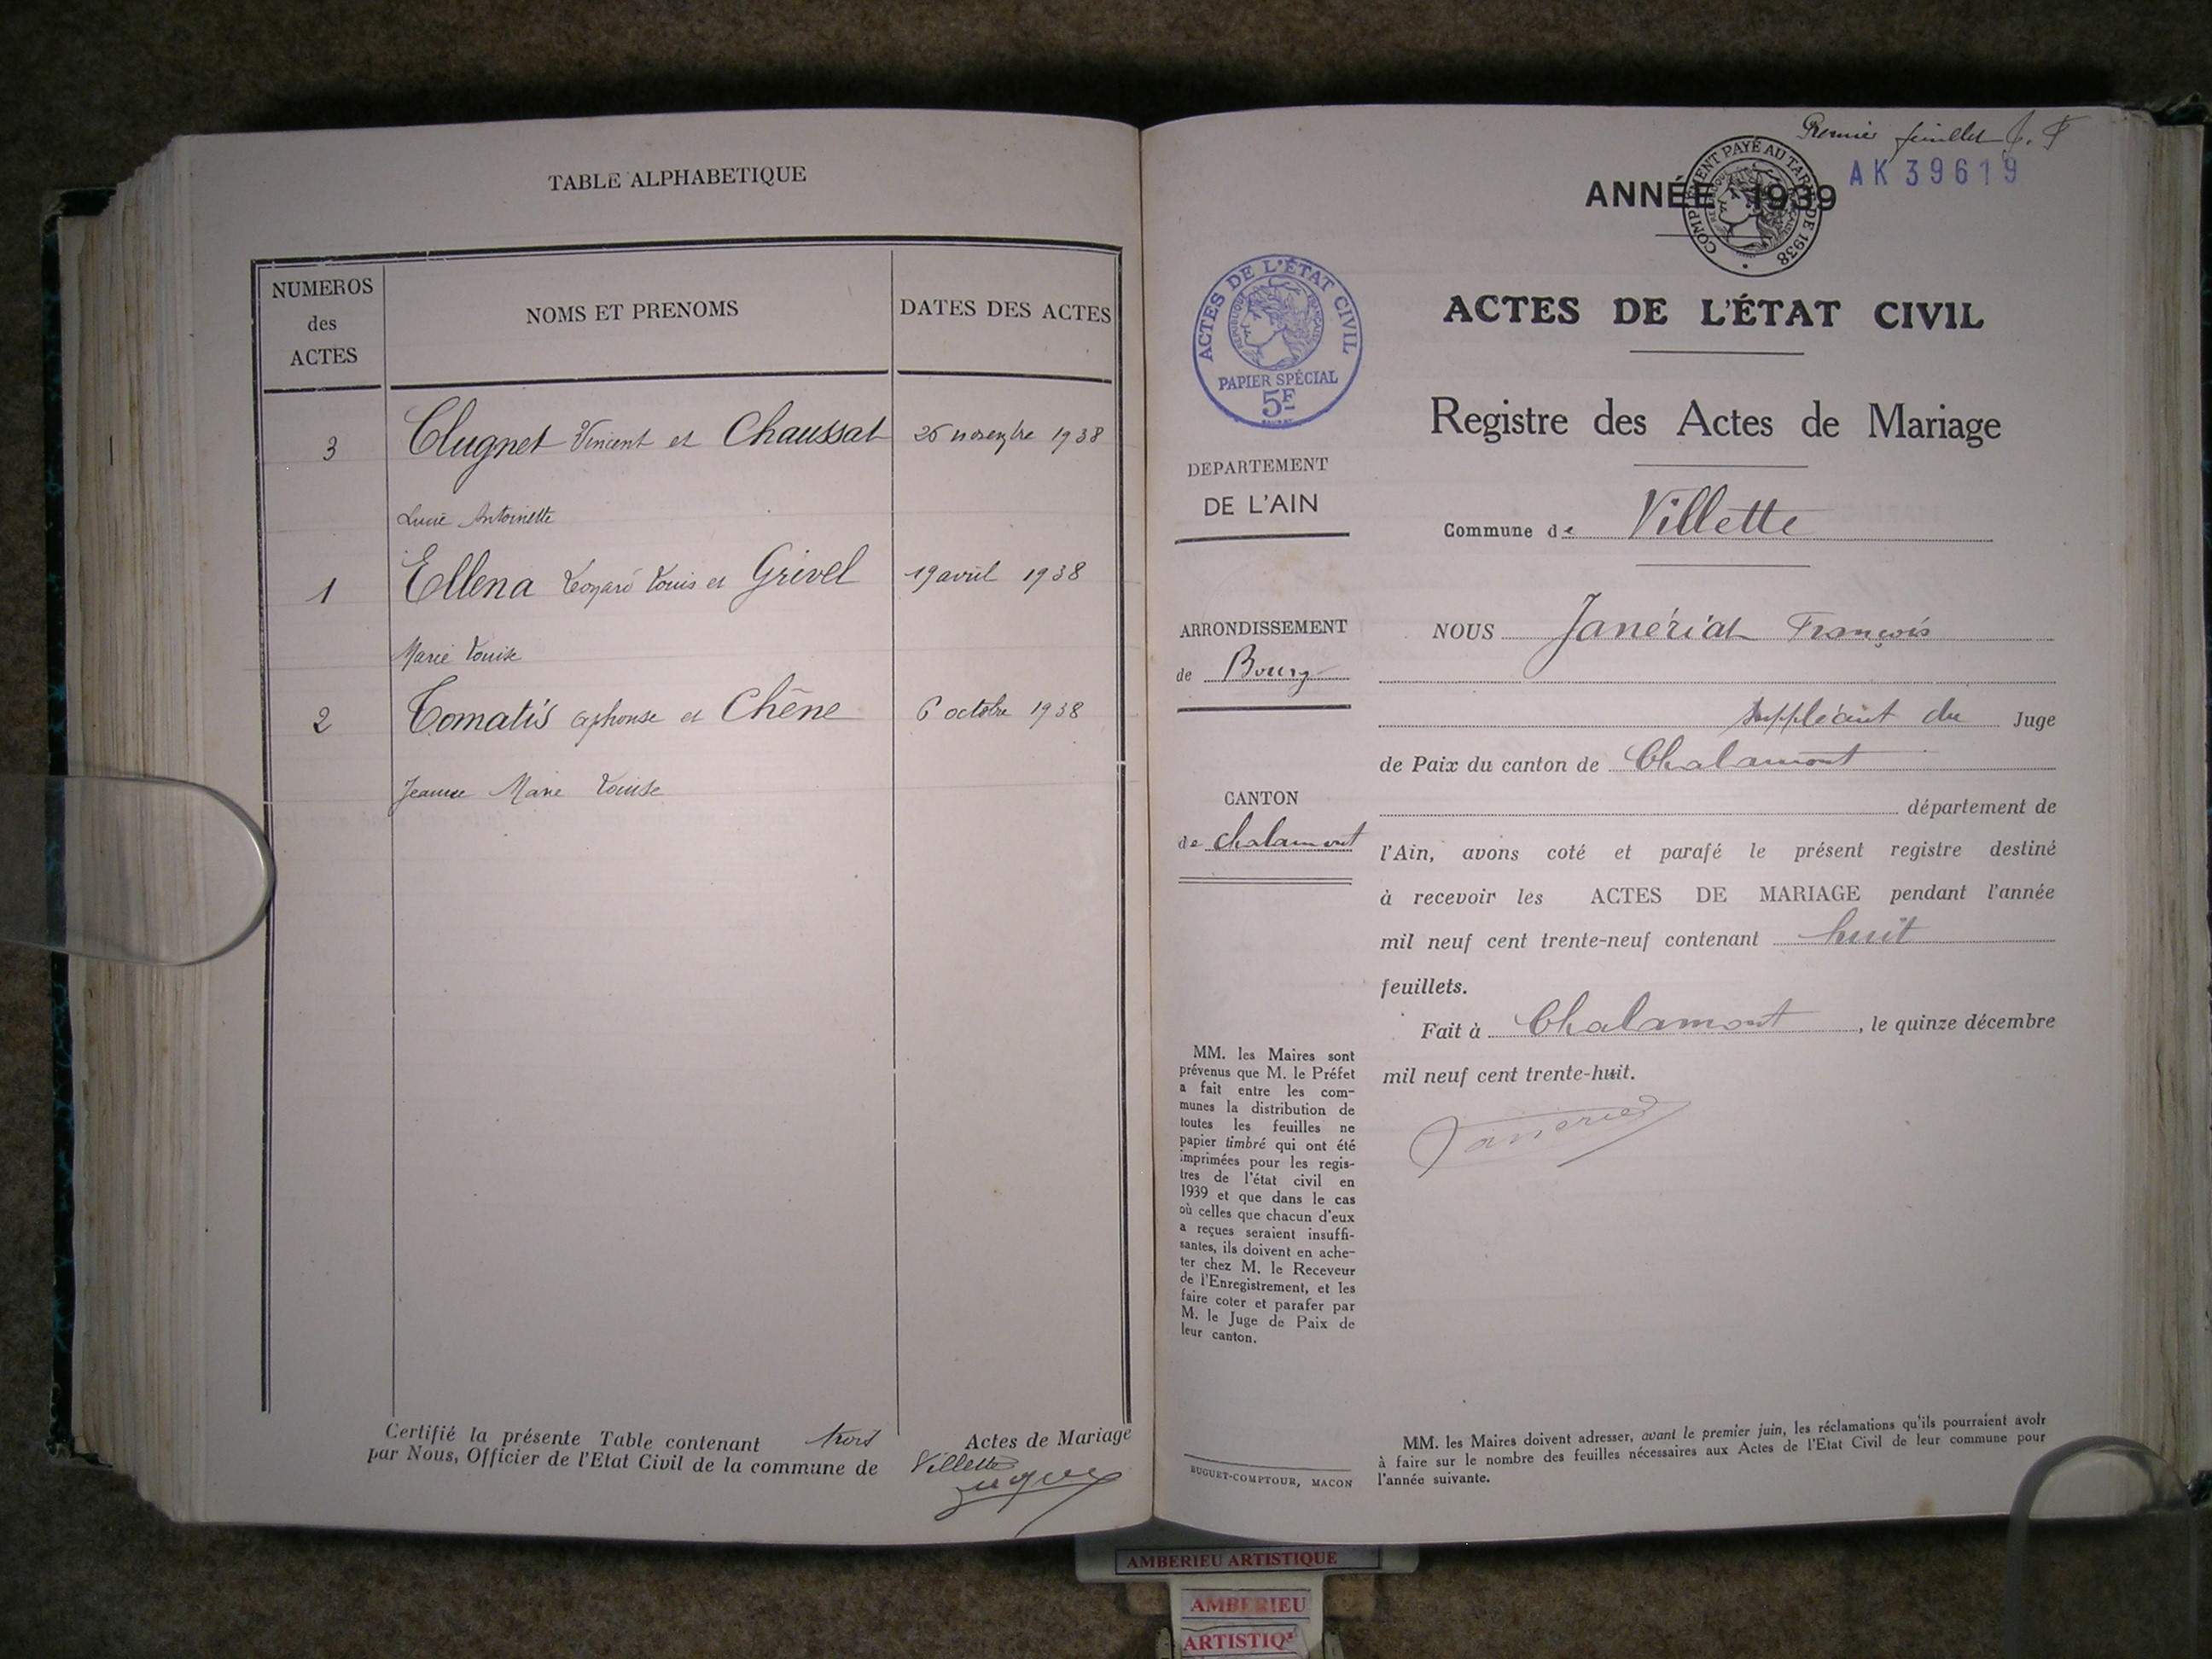 TABLE ALPHABETIQUE
NUMEROS
des
ACTES
NOMS ET PRENOMS
DATES DES ACTES
3 Clugnet Vincent et Chaussat 26 novembre 1938
Lucie Antoinette
1 Ellena Léonard Louis et Grivel 19 avril 1938
Marie Louise
2 Tomatis Alphonse et Chêne 6 octobre 1938
Jeanne Marie Louise
Certifié la présente Table contenant trois Actes de Mariage
par Nous, Officier de l'Etat Civil de la commune de Villette
Premier feuillet
AK 39619
ANNÉE 1939
COMPLEMENT PAYÉ AU TARIF DE 1938
ACTES DE L'ÉTAT CIVIL
REPUBLIQUE FRANÇAISE
PAPIER SPÉCIAL
5F
ACTES DE L'ÉTAT CIVIL
Registre des Actes de Mariage
DEPARTEMENT
DE L'AIN
Commune de Villette
ARRONDISSEMENT
de Bourg
CANTON
de Chalamont
NOUS Janériat François
suppléant du Juge
de Paix du canton de Chalamont
département de
l'Ain, avons coté et parafé le présent registre destiné
à recevoir les ACTES DE MARIAGE pendant l'année
mil neuf cent trente-neuf contenant huit
feuillets.
Fait à Chalamont, le quinze décembre
mil neuf cent trente-huit.
MM. les Maires sont
prévenus que M. le Préfet
a fait entre les com-
munes la distribution de
toutes les feuilles ne
papier timbré qui ont été
imprimées pour les regis-
tres de l'état civil en
1939 et que dans le cas
où celles que chacun d'eux
a reçues seraient insuffi-
santes, ils doivent en ache-
ter chez M. le Receveur
de l'Enregistrement, et les
faire coter et parafer par
M. le Juge de Paix de
leur canton.
BUGUET-COMPTOUR, MACON
MM. les Maires doivent adresser, avant le premier juin, les réclamations qu'ils pourraient avoir
à faire sur le nombre des feuilles nécessaires aux Actes de l'Etat Civil de leur commune pour
l'année suivante.
AMBERIEU ARTISTIQUE
AMBERIEU
ARTISTIQ